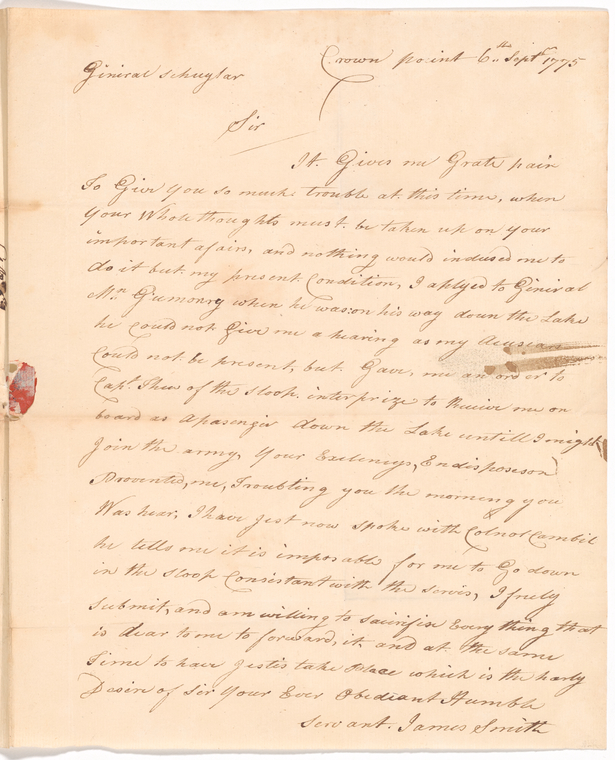 Crown point 6th Sept 1775
Gineral Schuylar
Sir
It Gives me Grate pain
To Give you so much trouble at this time, when
Your Whole thoughts must be taken up on your
important afairs, and nothing would indused me to
do it but my present Condition, I aplyed to Gineral
Mn Gumonry when he was on his way down the Lake
he Could not Give me a hearing as my
Could not be present, but Gave me an order to
Capt Thew of the Sloop interprize to Recive me on
board as a pasengir down the Lake untill I might
Join the army, Your Exelencys, Endisposeson
Prevented, me, Troubling you the morning you
Was hear, I have Jest now spoke with Colnol Cambil
he tells me it is imposable for me to Go down
in the Sloop Consistant with the servis, I frely
Submit, and am willing to sacrifise Every thing that
is dear to me to forward, it, and at the same
Time to have Jestis take Place which is the harty
Desire of Sir Your Ever Obediant Humble
Servant. James Smith